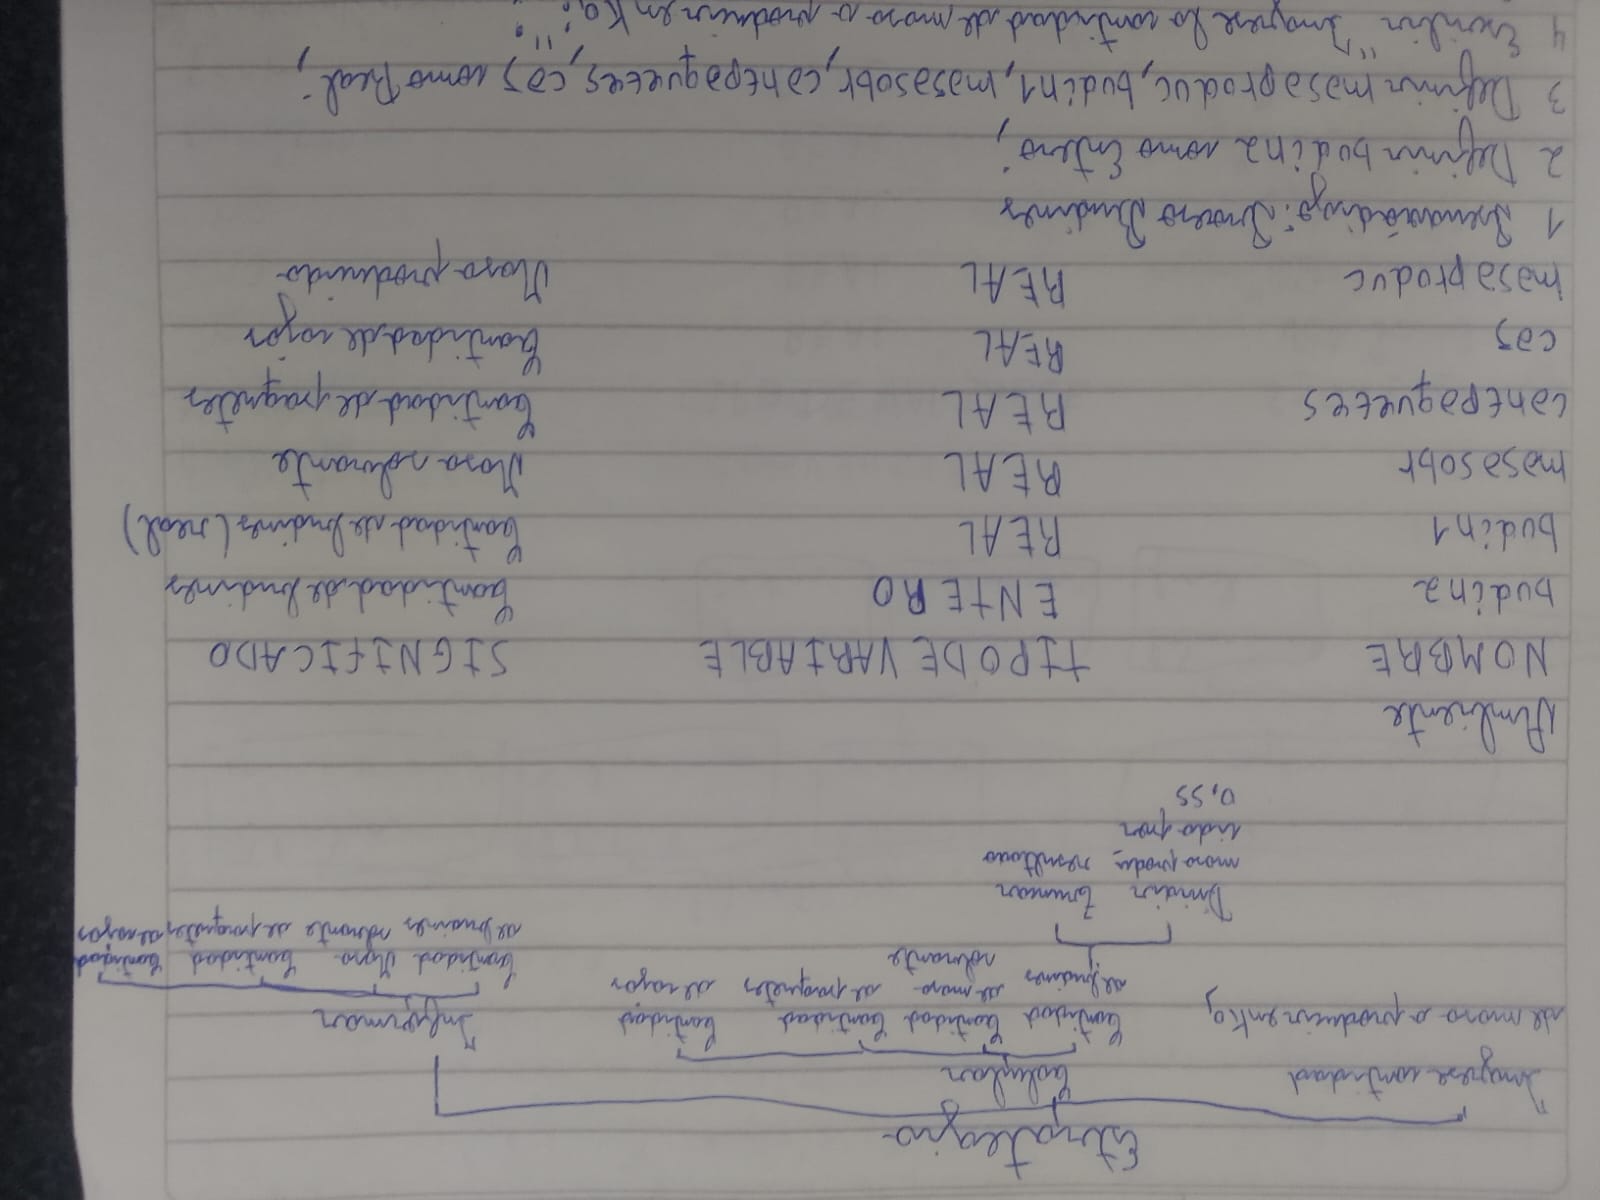 Estrategia
Ingrese cantidad
de masa a producir en Kg
Calcular
Cantidad
de budines
Cantidad
de masa
sobrante
Cantidad
de paquetes
Cantidad
de cajas
Dividir
masa produ-
cida por
0,55
Truncar
resultado
Informar
Cantidad
de budines
Masa
sobrante
Cantidad
de paquetes
Cantidad
de cajas
Ambiente
NOMBRE TIPO DE VARIABLE SIGNIFICADO
budin2 ENTERO Cantidad de budines
budin1 REAL Cantidad de budines (real)
masasobr REAL Masa sobrante
cantpaquetes REAL Cantidad de paquetes
caj REAL Cantidad de cajas
masaproduc REAL Masa producida
1 Pseudocódigo: Proceso Budines
2 Definir budin2 como Entero;
3 Definir masaproduc, budin1, masasobr, cantpaquetes, caj como Real;
4 Escribir "Ingrese la cantidad de masa a producir en Kg:";